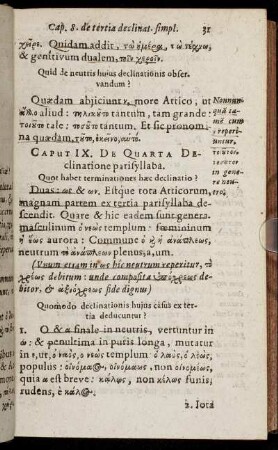 Cap. 8. de tertia declinat. simpl. 31
Quidam addit, τὼ ἡμέρα, τὼ τέχνα,
& genitivum dualem, τοῖν χεροῖν.
Quid de neutris hujus declinationis obser-
vandum?
Quædam abjiciunt ν, more Attico, ut
ἄλλο aliud: τηλικοῦτο tantum, tam grande:
τοιοῦτο tale: τοσοῦτο tantum. Et sic pronomi-
na quædam, τοῦτο, ἐκεῖνο, αὐτό.
Nonnun-
quã
cum ν
reperi-
untur,
in gene-
re.
CAPUT IX. DE QUARTA DE-
clinatione parisyllaba.
Quot habet terminationes hæc declinatio?
Duas: ως & ων. Estque tota Atticorum,
magnam partem ex tertia parisyllaba de-
scendit. Quare & hic eadem sunt genera
masculinum ὁ νεὼς templum: fœmininum
ἡ ἕως aurora: Commune ὁ κ ἡ ἀνάπλεως,
neutrum τὸ ἀνάπλεων plenus, a, um.
(Unum etiam in ως hic neutrum reperitur, τὸ
χρέως debitum: unde composita ὑπόχρεως de-
bitor, & ἀξιόχρεως fide dignus)
Quomodo declinationis hujus casus ex ter-
tia deducuntur?
1. O & α finale in neutris, vertuntur in
ω: & penultima in puris longa, mutatur
in ε, ut, ὁ ναὸς, ὁ νεὼς templum: ὁ λαὸς, ὁ λεὼς,
populus: οἰνόμαος, οινομεως,
quia α est breve: κάλως, non κέλως funis,
rudens, è κάλος.
2. Iota